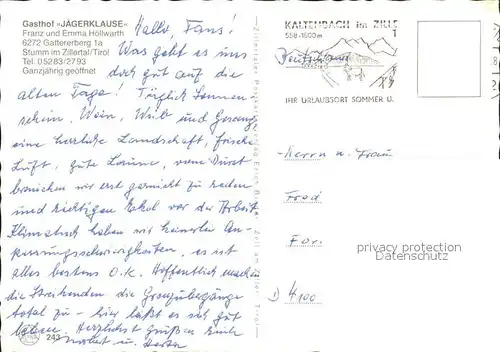 Gasthof »JÄGERKLAUSE«
Franz und Emma Höllwarth
6272 Gattererberg 1a
Stumm im Zillertal/Tirol
Tel. 05283/2793
Ganzjährig geöffnet
Hallo, Fans!
Was geht es uns
doch gut auf die
alten Tage! Täglich Sonnen-
schein, Wein, Weib und Gesang,
eine herrliche Landschaft, frische
Luft, gute Laune, vom Durst
brauchen wir erst garnicht zu reden
und richtigen Ekel vor der Arbeit
Klimatisch haben wir keinerlei An-
passungsschwierigkeiten, es ist
alles bestens O.K. Hoffentlich machen
die Streikenden die Grenzübergänge
total zu – hier läßt es sich gut
leben. Herzlichst grüßen Euch
Norbert u.
243
KALTENBACH im ZILLE
558-1600m
1
Deutschland
IHR URLAUBSORT SOMMER U.
Herrn u. Frau
Fred
For.
D 4100
privat copyright
picture postcards